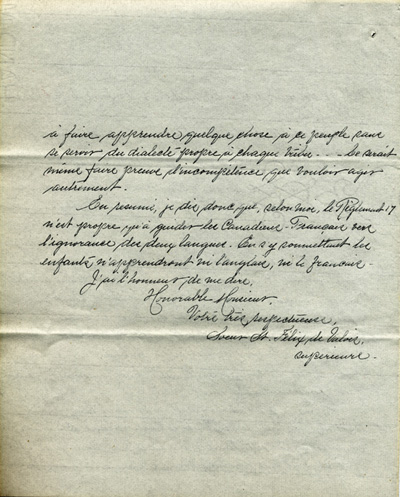 à faire apprendre quelque chose à ce peuple sans
se servir du dialecte propre à chaque tribu - - - Ce serait
même faire preuve d'incompétence, que vouloir agir
autrement.
En résumé, je dis donc que, selon moi, le Règlement 17
n'est propre qu'à guider les Canadiens-Français vers
l'ignorance des deux langues. En s'y soumettant les
enfants n'apprendront ni l'anglais, ni le français.
J'ai l'honneur de me dire,
Honorable Monsieur,
Votre très respectueuse,
Soeur St. Félix de Valois,
supérieure.